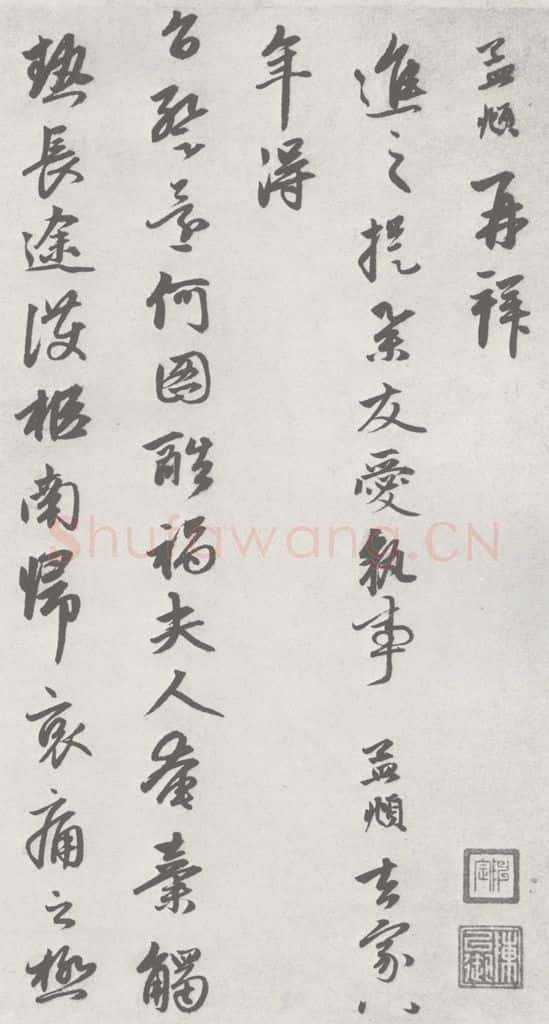 孟頫再拜
進之提舉友愛執事 孟頫去家八
年得
旨暫還何圖酷禍夫人奄棄觸
熱長途護柩南歸哀痛之極
Shufawang.CN